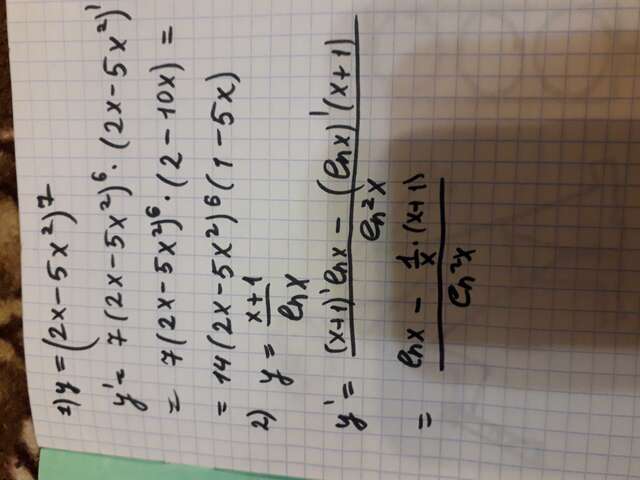 1) y = (2x - 5x²)⁷
y' = 7(2x - 5x²)⁶ · (2x - 5x²)'
= 7(2x - 5x²)⁶ · (2 - 10x) =
= 14(2x - 5x²)⁶(1 - 5x)
2) y = (x+1)/(ln x)
y' = ((x+1)' ln x - (ln x)'(x+1))/(ln² x)
= (ln x - 1/x · (x+1))/(ln² x)